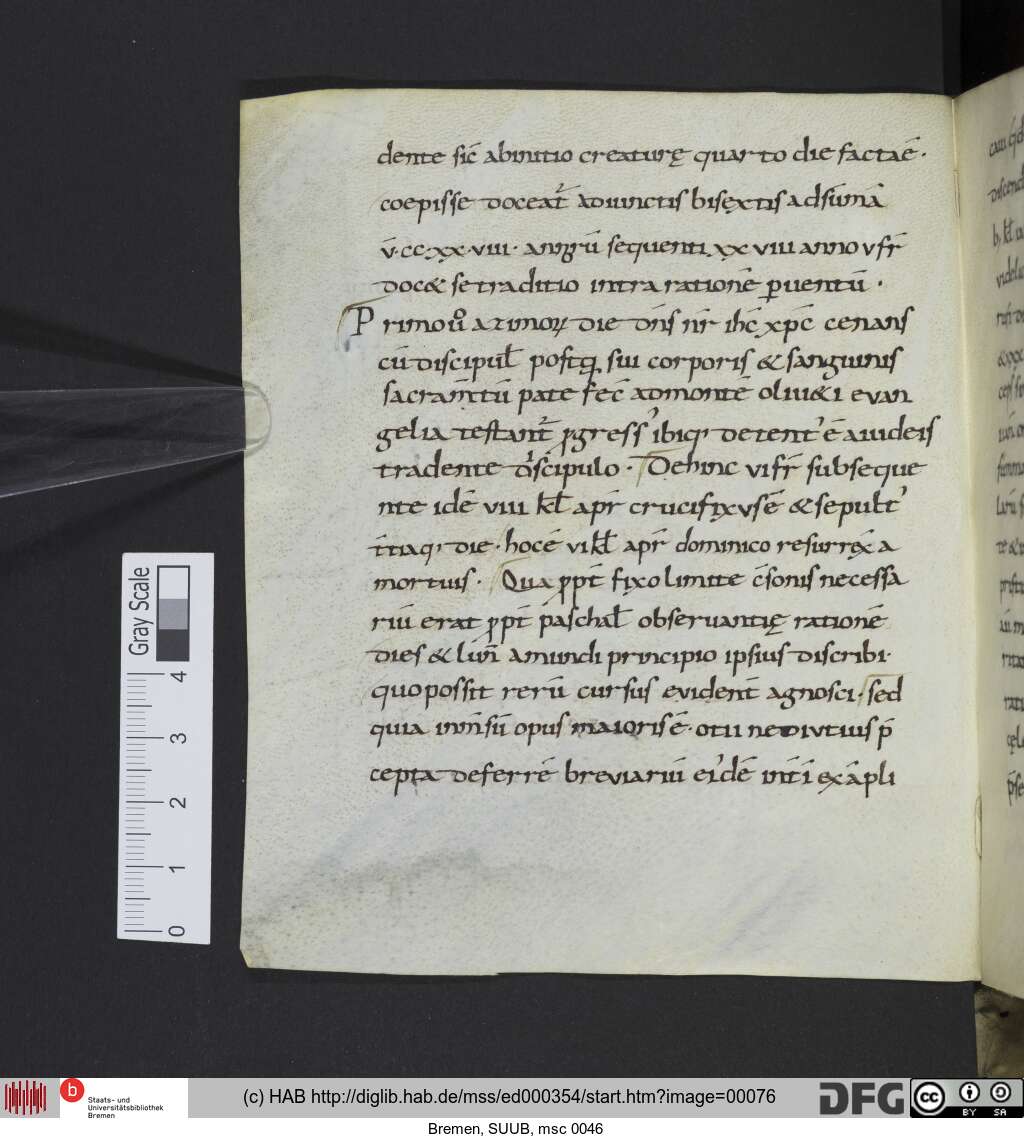 dente sic̄ abinitio creaturę quarto die factaē·
coepisse doceat᷑ adiunctis bisextis adsūmā
v̄·cc·xx·viii· annorū sequenti xx viii anno vſr̄
doc& se traditio intra rationē ꝑuentū·
Primo ū azimoꝝ die dn̄s nr̄ ihc̄ xp̄c cenans
cū discipul̄ postꝗ sui corporis & sanguinis
sacram̄tū pate fec̄ admontē oliu&i evan
gelia testant᷑ ꝓgress' ibiq; detent' ē aiudeis
tradente discipulo· Dehinc vi fr̄ subseque
nte idē viii kl̄ apr̄ crucifixusē & sepult'
itiaq; die· hocē vi kl̄ apr̄ dominico resurrex̄ a
mortuis· Qua ꝓpt̄ fixo limite c̄sonis necessa
riū erat ꝓpt̄ paschal̄ observantię rationē
dies & lun̄ amundi principio ipsius discribi·
quo possit rerū cursus evident̄ agnosci· sed
quia inm̄sū opus maiorisē· otii nediutius p̄
cepta deferrē breviariū ei'dē int̄i exāpli
Gray Scale
4
3
2
1
0
b
Staats- und
Universitätsbibliothek
Bremen
(c) HAB http://diglib.hab.de/mss/ed000354/start.htm?image=00076
DFG
cc
BY SA
Bremen, SUUB, msc 0046